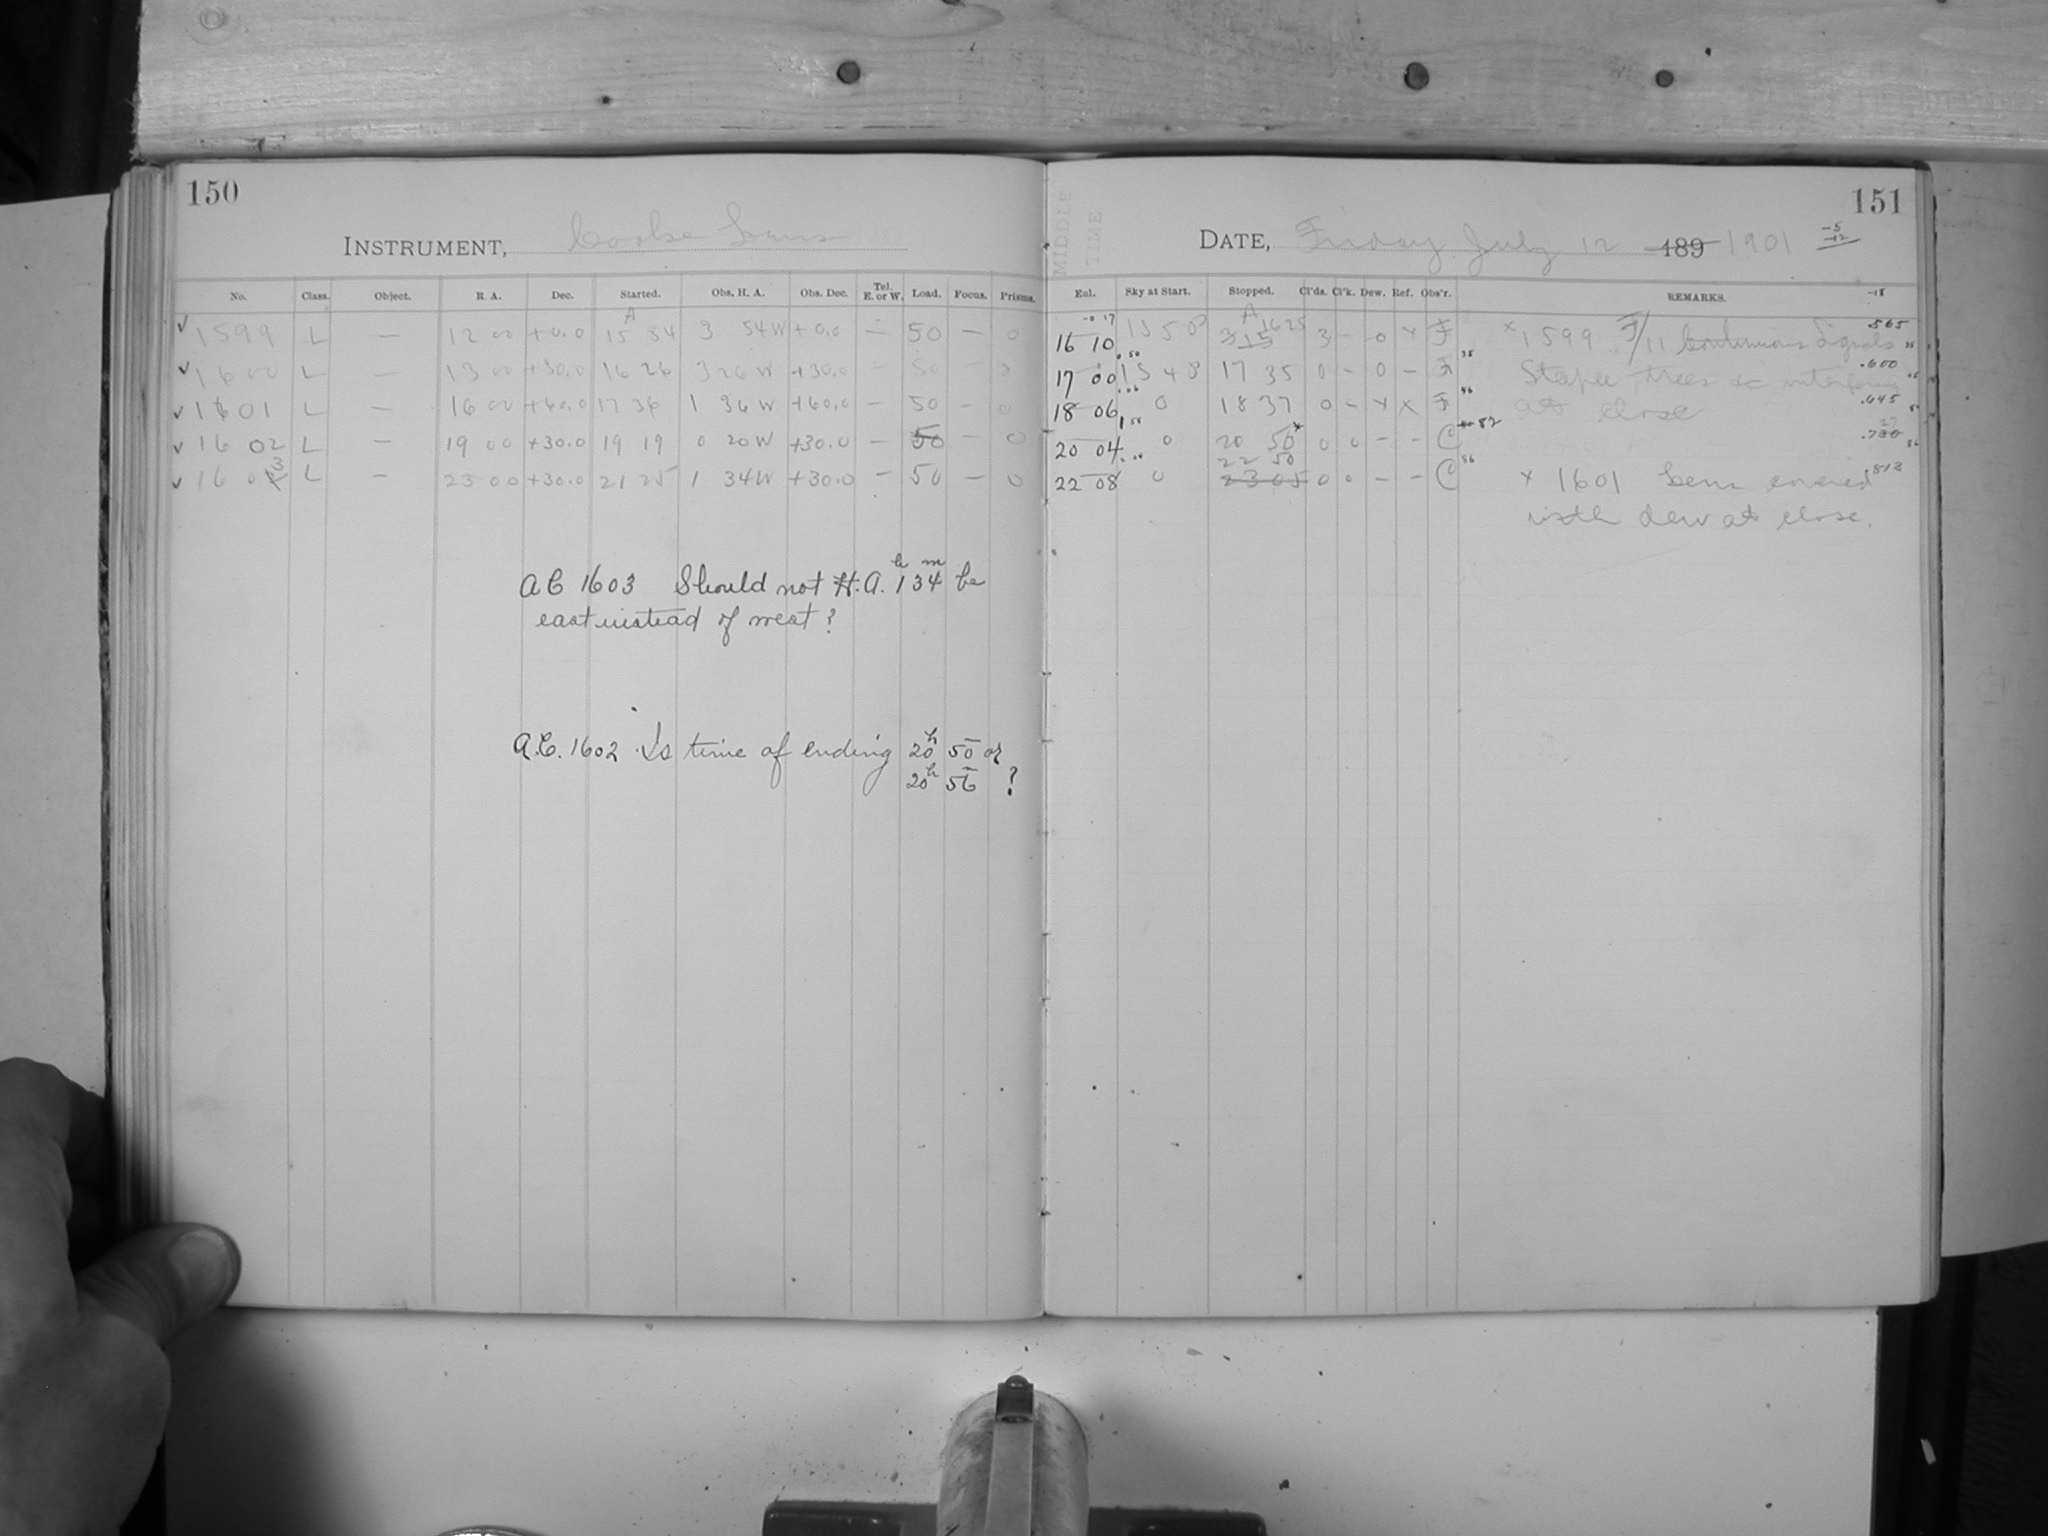 150
INSTRUMENT, Cooke Lens
No. Class. Object. R. A. Dec. Started. Obs. H. A. Obs. Dec. Tel. E. or W. Load. Focus. Prisms.
1599 L — 12 00 +0.0 15 54 3 54W +0.0 — 50 — 0
1600 L — 13 00 +30.0 16 26 3 26 W +30.0 — 50 — 0
1601 L — 16 00 +60.0 17 36 1 36 W +60.0 — 50 — 0
1602 L — 19 00 +30.0 19 19 0 20W +30.0 — 50 — 0
1603 L — 23 00 +30.0 21 25 1 34W +30.0 — 50 — 0
A C 1603 Should not H.A. 1h 34m be
east instead of west?
A.C. 1602 Is time of ending 20h 50 or
20h 56 ?
151
MIDDLE
TIME
DATE, Friday July 12 189 1901
-5
-12
Enl. Sky at Start. Stopped. Cl'ds. Cl'k. Dew. Ref. Obs'r. REMARKS.
16 10 3 15 16 25 3 – 0 × F × 1599 F/11 Continuous Signals .565
17 00 17 35 0 – 0 – F Steeple, trees &c interfering .600
18 06 0 18 37 0 – × × F at close .645
20 04 0 20 50 0 0 – – C
22 08 0 22 50 23 05 0 0 – – C × 1601 Lens covered .813
with dew at close.